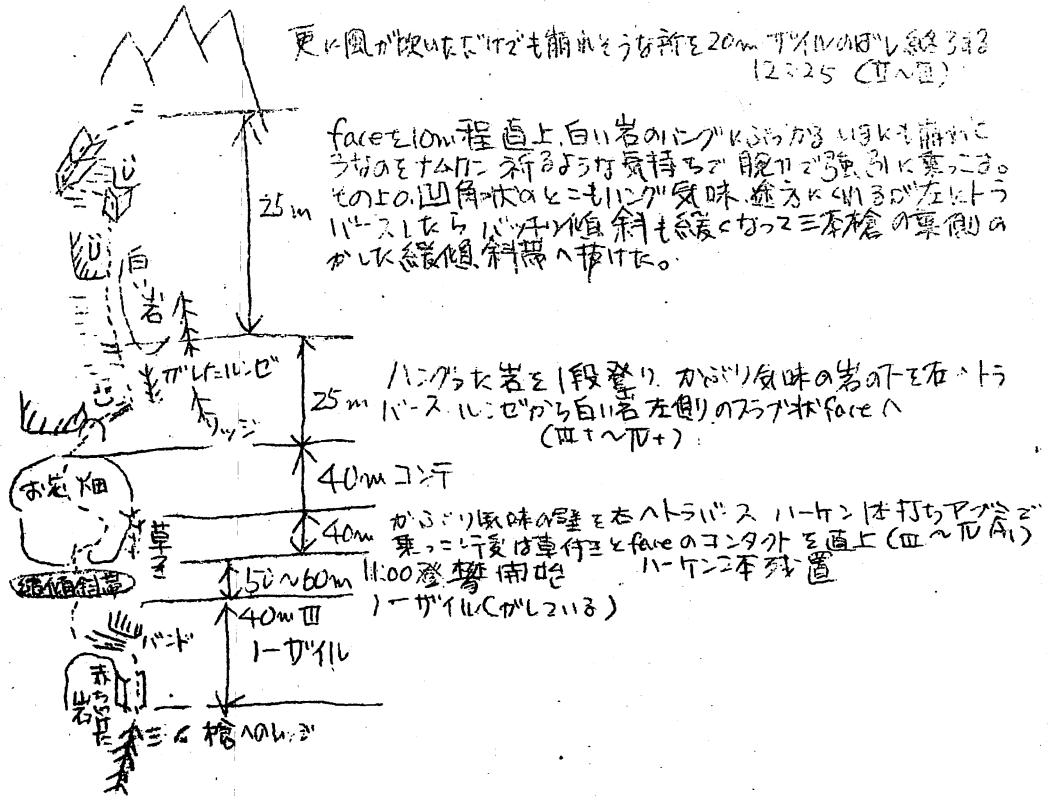 更に風が吹いただけでも崩れそうな所を20mザイルのばし終了する
12:25 (II~III)
faceを10m程直上、白い岩のハングにぶつかる いまにも崩れそ
うなのをナムサン 祈るような気持ちで腕力で強引に乗っこす。
その上の凹角状のとこもハング気味、途方にくれるが左にトラ
バースしたらバッチリ傾斜も緩くなって三本槍の裏側の
がした緩傾斜帯へ抜けた。
25m
白い岩
ガレたルンゼ
リッジ
25m
ハングった岩を1段登り、かぶり気味の岩の下を右へトラ
バース ルンゼから白い岩左側のスラブ状faceへ
(III+~IV+)
40mコンテ
お花畑
草つき
40m
かぶり気味の壁を右へトラバース ハーケン1本打ちアブミで
乗っこし後は草付きとfaceのコンタクトを直上(III~IV A1)
ハーケン2本残置
緩傾斜帯
50~60m
11:00登攀開始
ノーザイル(がしている)
40m III
ノーザイル
バンド
赤ちゃけた岩
三本槍へのリッジ